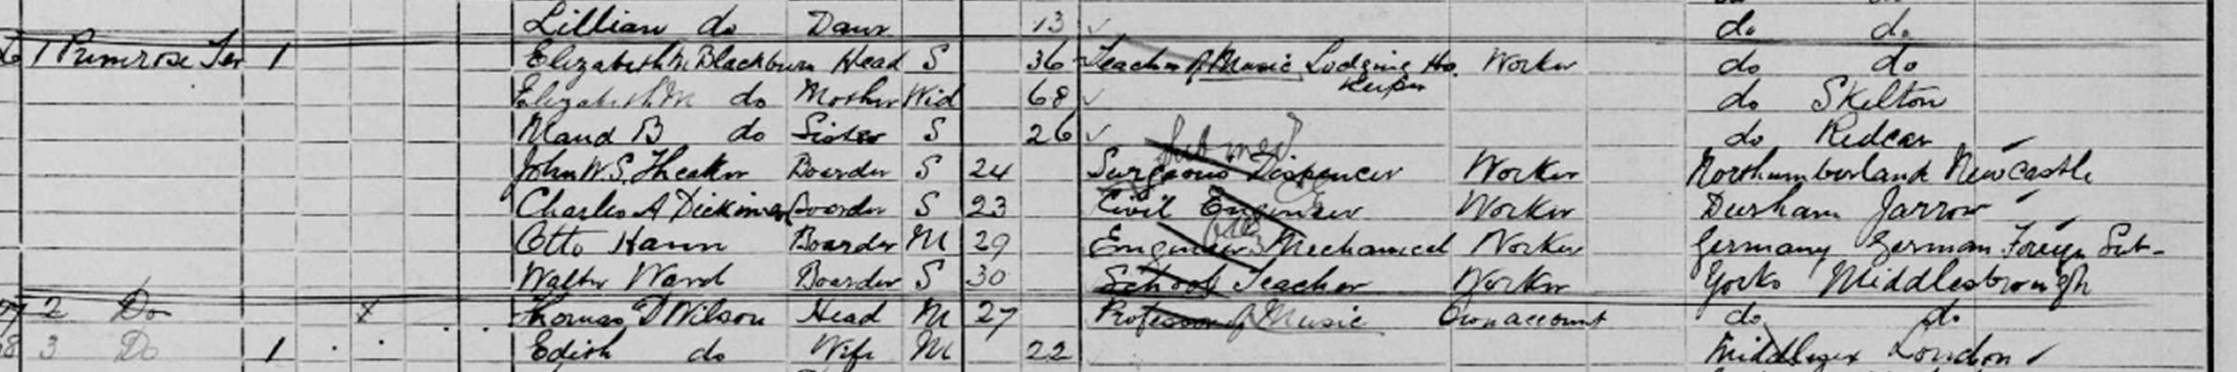 Lillian do Daur 13 do do
1 Primrose Ter 1 Elizabeth Blackburn Head S 36 Teacher of Music Lodging Ho. Keeper Worker do do
Elizabeth M do Mother Wid 68 do Skelton
Maud B do Sister S 26 do Redcar
John W. S. Theaker Boarder S 24 Surgeons Dispencer Worker Northumberland Newcastle
Charles A Boarder S 23 Civil Engineer Worker Durham Jarrow
Otto Boarder M 29 Engineer Mechanical Worker Germany German Foreign Sub-
Walter Ward Boarder S 30 School Teacher Worker Yorks Middlesbrough
2 Do X Thomas D Wilson Head M 27 Professor of Music Own account do do
3 Do 1 Edith do Wife M 22 Middlesex London